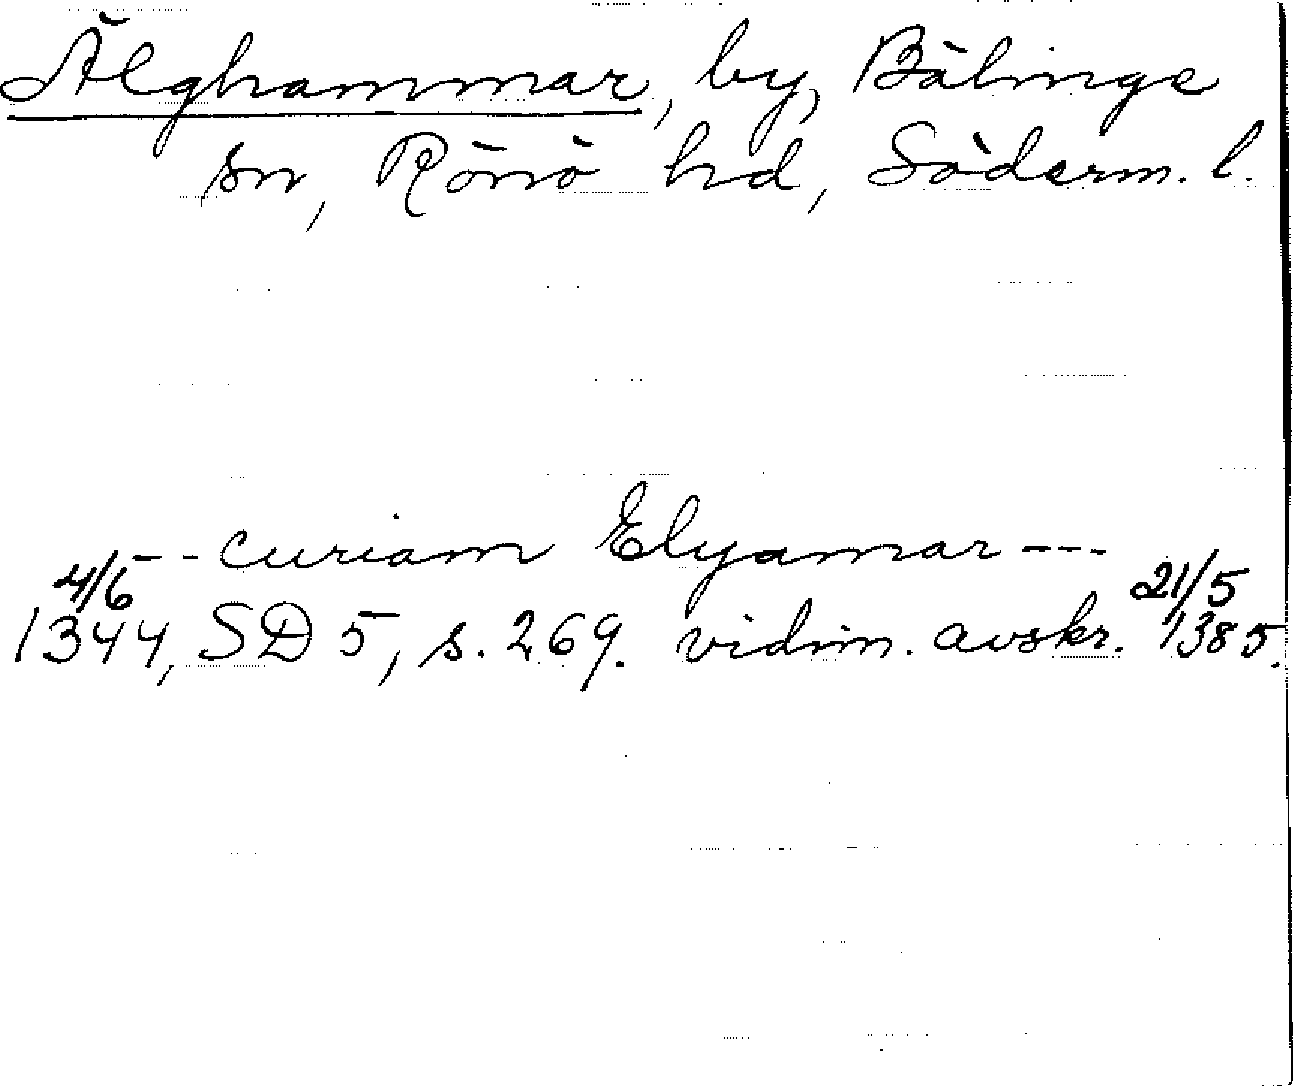 Älghammar, by, Bälinge
sn, Rönö hd, Söderm. l.
--curiam Elyamar---
4/6 21/5
1344, SD 5, s. 269. vidim. avskr. 1385.